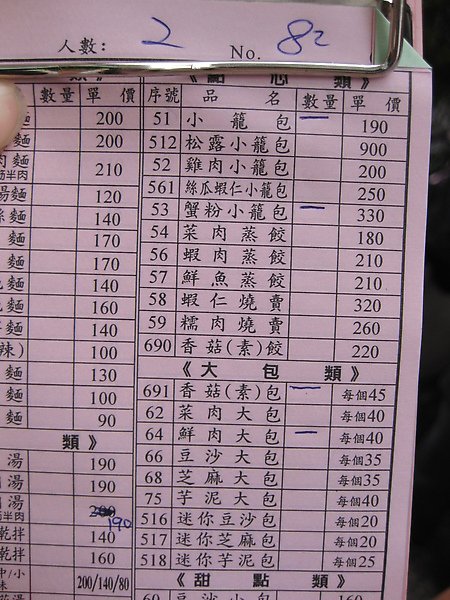 人數: 2 No. 82
類》 《點心類》
數量 單價 序號 品名 數量 單價
麵 200 51 小籠包 一 190
麵 200 512 松露小籠包 900
肉麵 210 52 雞肉小籠包 200
筋半肉
湯麵 120 561 絲瓜蝦仁小籠包 250
絲麵 140 53 蟹粉小籠包 一 330
麵 170 54 菜肉蒸餃 180
麵 170 56 蝦肉蒸餃 210
麵 140 57 鮮魚蒸餃 210
麵 160 58 蝦仁燒賣 320
麵 140 59 糯肉燒賣 260
辣) 100 690 香菇(素)餃 220
麵 130 《大包類》
麵 100 691 香菇(素)包 一 每個45
麵 90 62 菜肉大包 每個40
類》 64 鮮肉大包 一 每個40
湯 190 66 豆沙大包 每個35
湯 190 68 芝麻大包 每個35
湯 200 190 75 芋泥大包 每個40
筋半肉
乾拌 140 516 迷你豆沙包 每個20
乾拌 160 517 迷你芝麻包 每個20
中/小 200/140/80 518 迷你芋泥包 每個25
味 《甜點類》
60 豆沙小包 160